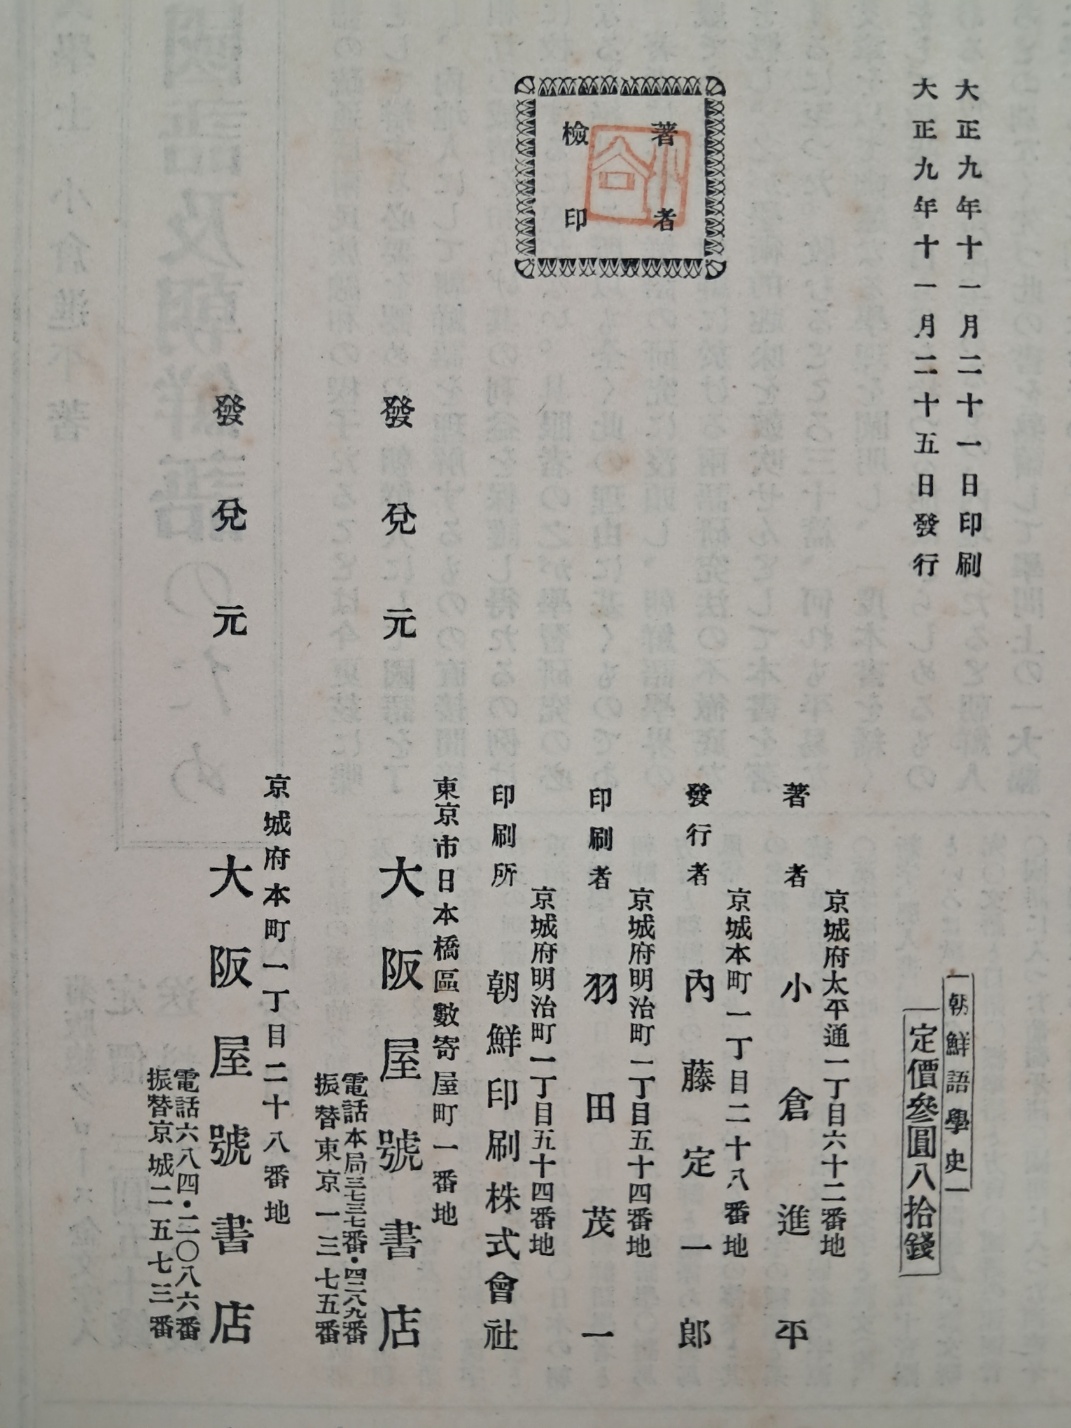 大正九年十一月二十一日印刷
大正九年十一月二十五日發行
著者
檢印
小倉
朝鮮語學史
定價參圓八拾錢
京城府太平通一丁目六十二番地
著者 小倉進平
京城本町一丁目二十八番地
發行者 內藤定一郎
京城府明治町一丁目五十四番地
印刷者 羽田茂一
京城府明治町一丁目五十四番地
印刷所 朝鮮印刷株式會社
東京市日本橋區數寄屋町一番地
發兌元 大阪屋號書店
電話本局三七三七番・四二八九番
振替東京一三七五番
京城府本町一丁目二十八番地
發兌元 大阪屋號書店
電話六八四・二〇八六番
振替京城二五七三番